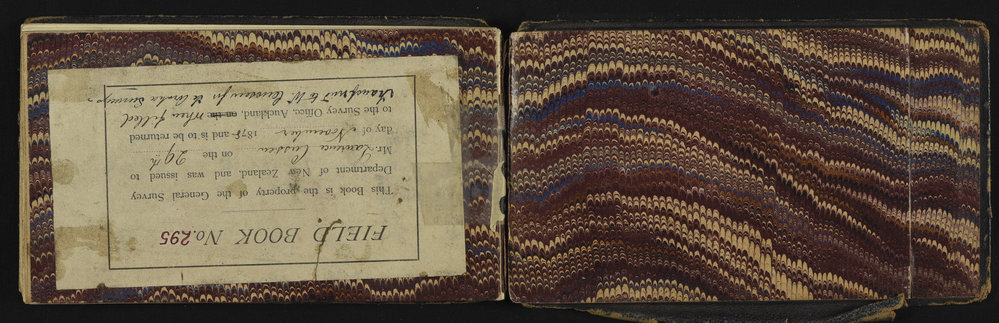 FIELD BOOK No. 295
This Book is the property of the General Survey
Department of New Zealand, and was issued to
Mr. Lawrence Cussen on the 29th
day of November 1878 and is to be returned
to the Survey Office, Auckland, on the when filled
Transferred to W Cussen for Survey